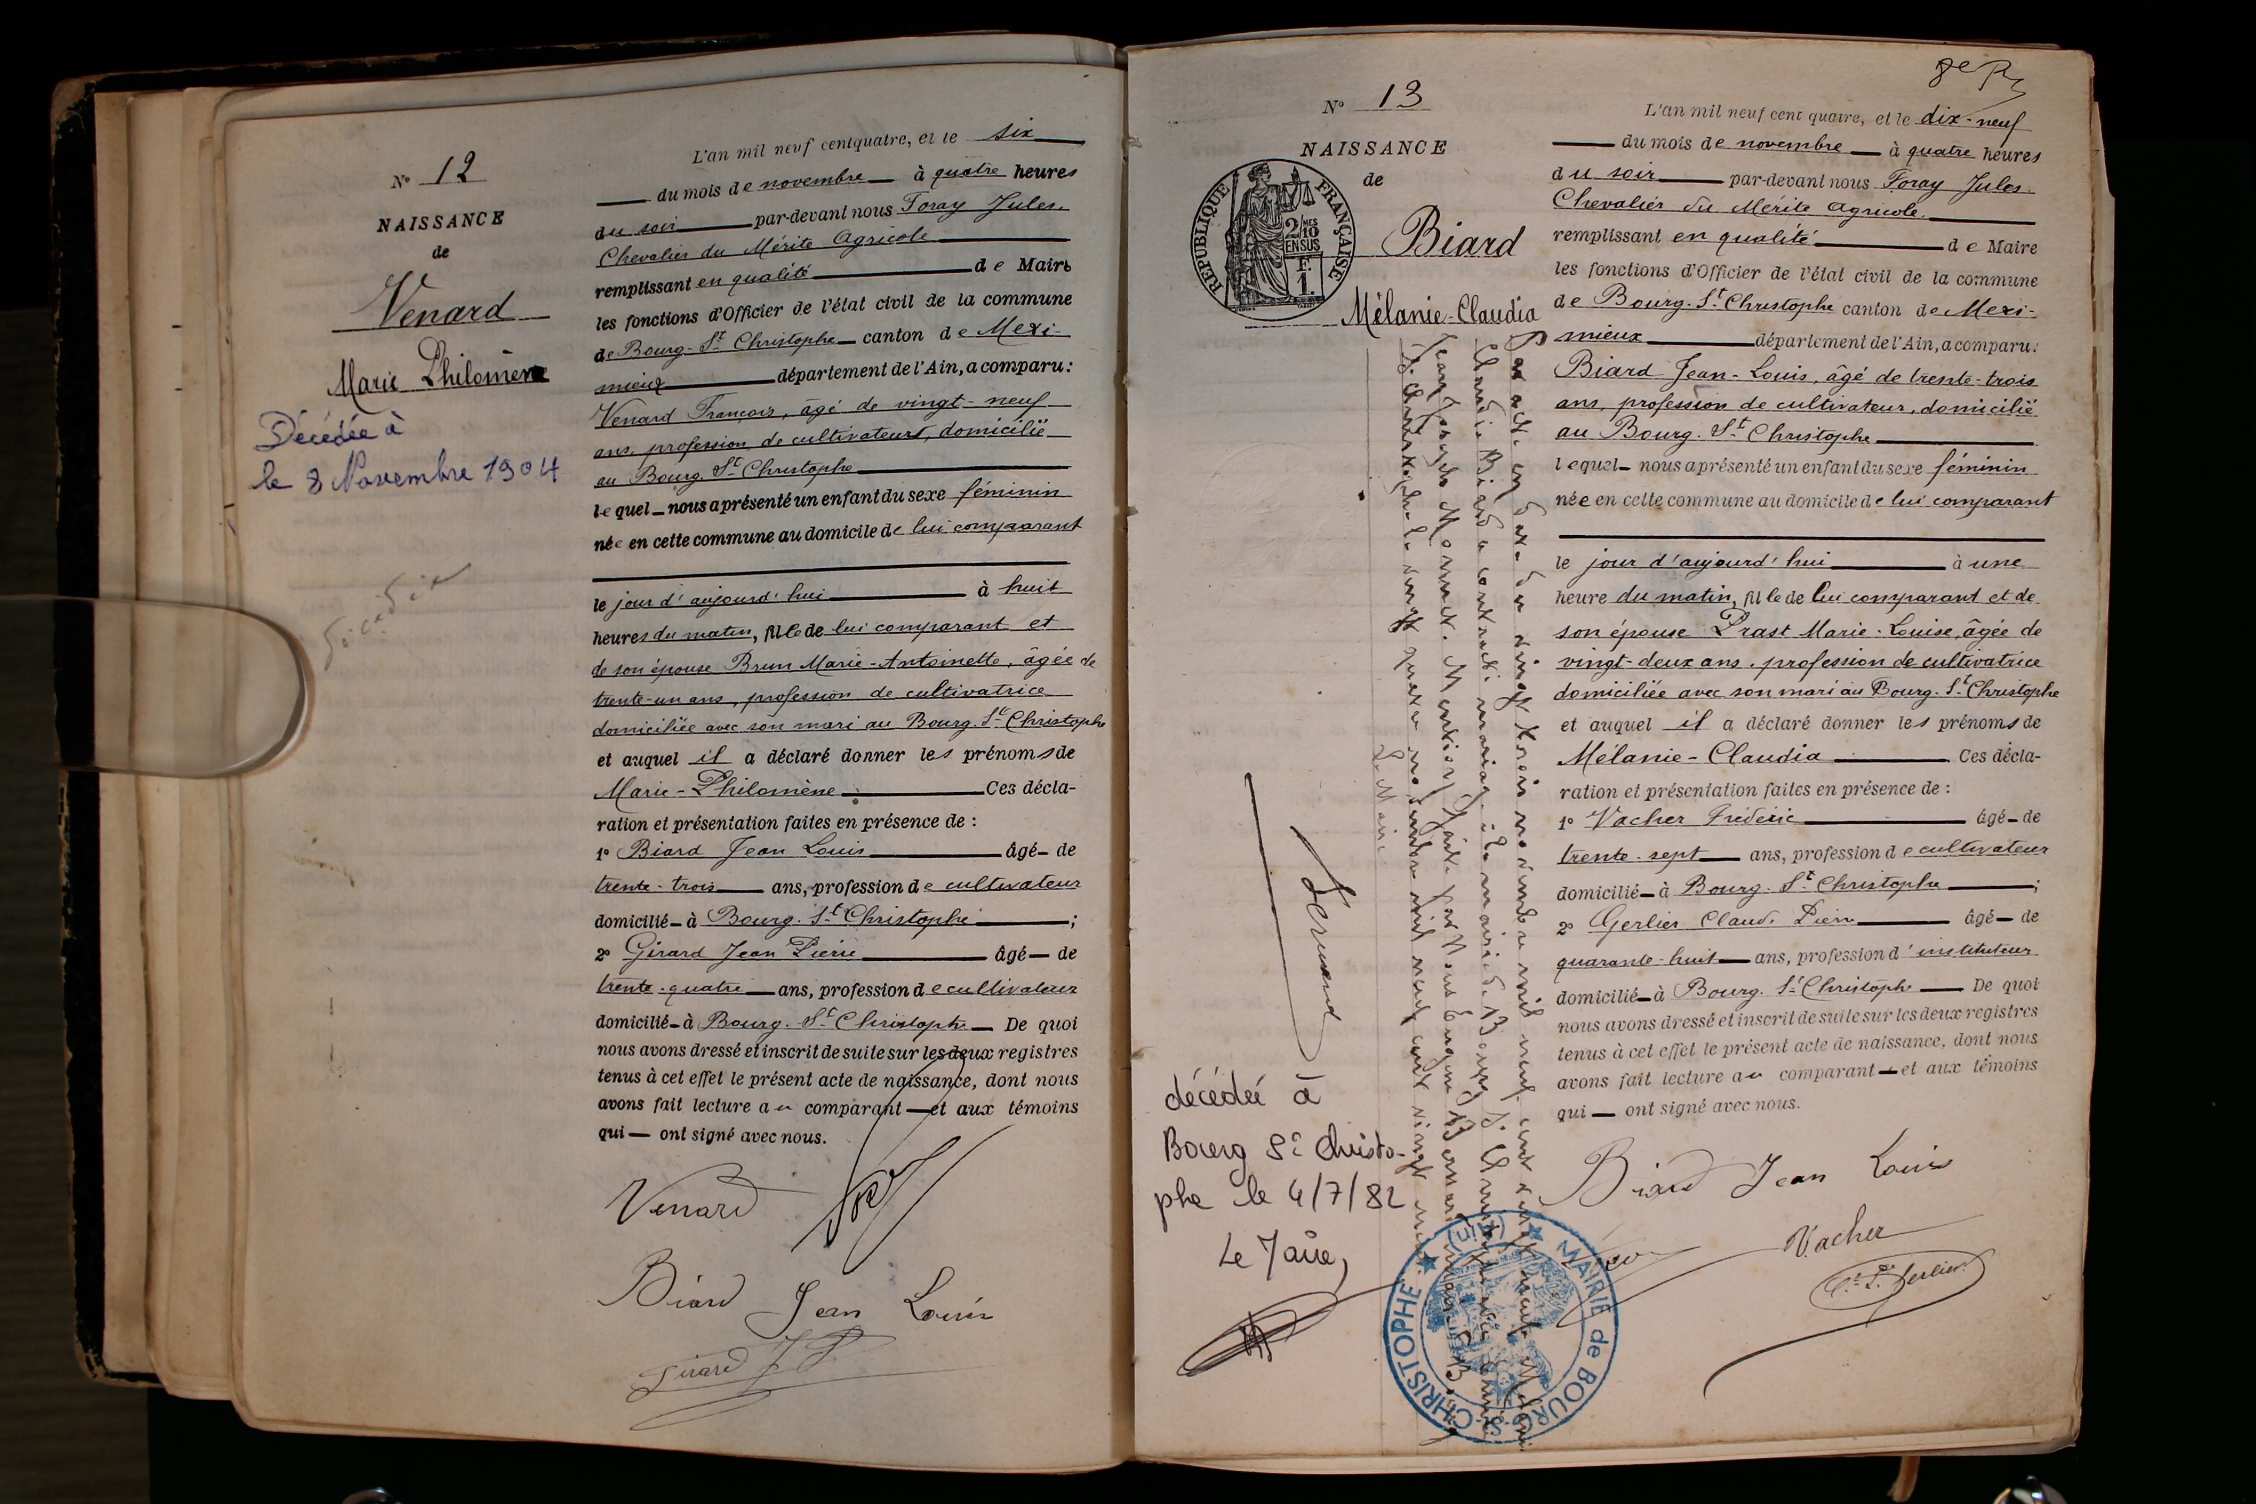 N° 12
NAISSANCE
de
Venard
Marie Philomène
Décédée à
le 8 Novembre 1904
décédée
L'an mil neuf cent quatre, et le six
du mois de novembre à quatre heures
du soir par-devant nous Foray Jules
Chevalier du Mérite Agricole
remplissant en qualité de Maire
les fonctions d'Officier de l'état civil de la commune
de Bourg-St Christophe canton de Mexi-
mieux département de l'Ain, a comparu :
Venard François, âgé de vingt-neuf
ans, profession de cultivateur, domicilié
au Bourg-St Christophe
lequel nous a présenté un enfant du sexe féminin
née en cette commune au domicile de lui comparant
le jour d'aujourd'hui à huit
heures du matin, fille de lui comparant et
de son épouse Brun Marie-Antoinette, âgée de
trente-un ans, profession de cultivatrice
domiciliée avec son mari au Bourg-St Christophe
et auquel il a déclaré donner les prénoms de
Marie-Philomène Ces décla-
ration et présentation faites en présence de :
1° Biard Jean Louis âgé de
trente-trois ans, profession de cultivateur
domicilié à Bourg-St Christophe ;
2° Girard Jean Pierre âgé de
trente-quatre ans, profession de cultivateur
domicilié à Bourg-St Christophe De quoi
nous avons dressé et inscrit de suite sur les deux registres
tenus à cet effet le présent acte de naissance, dont nous
avons fait lecture au comparant et aux témoins
qui ont signé avec nous.
Venard
Biard Jean Louis
Girard J P
8e R
N° 13
NAISSANCE
de
RÉPUBLIQUE FRANÇAISE
2/10 MES
EN SUS
F.
1.
Biard
Mélanie-Claudia
Par acte en date du vingt trois novembre mil neuf cent vingt neuf Mélanie
Claudia Biard a contracté mariage à la mairie de Bourg St Christophe avec
Jean Joseph Monnet. Mention faite par Nous Eugène Bernard maire de Bourg
St Christophe le vingt quatre novembre mil neuf cent vingt neuf
Le Maire
Bernard
décédée à
Bourg St Christo-
phe le 4/7/82
Le Maire,
MAIRIE de BOURG-St-CHRISTOPHE (Ain)
L'an mil neuf cent quatre, et le dix-neuf
du mois de novembre à quatre heures
du soir par-devant nous Foray Jules
Chevalier du Mérite Agricole
remplissant en qualité de Maire
les fonctions d'Officier de l'état civil de la commune
de Bourg-St Christophe canton de Mexi-
mieux département de l'Ain, a comparu :
Biard Jean-Louis, âgé de trente-trois
ans, profession de cultivateur, domicilié
au Bourg-St Christophe
lequel nous a présenté un enfant du sexe féminin
née en cette commune au domicile de lui comparant
le jour d'aujourd'hui à une
heure du matin, fille de lui comparant et de
son épouse Prast Marie-Louise, âgée de
vingt-deux ans, profession de cultivatrice
domiciliée avec son mari au Bourg-St Christophe
et auquel il a déclaré donner les prénoms de
Mélanie-Claudia Ces décla-
ration et présentation faites en présence de :
1° Vacher Frédéric âgé de
trente-sept ans, profession de cultivateur
domicilié à Bourg-St Christophe ;
2° Gerlier Claude Pierre âgé de
quarante-huit ans, profession d'instituteur
domicilié à Bourg-St Christophe De quoi
nous avons dressé et inscrit de suite sur les deux registres
tenus à cet effet le présent acte de naissance, dont nous
avons fait lecture au comparant et aux témoins
qui ont signé avec nous.
Biard Jean Louis
Vacher
Gerlier